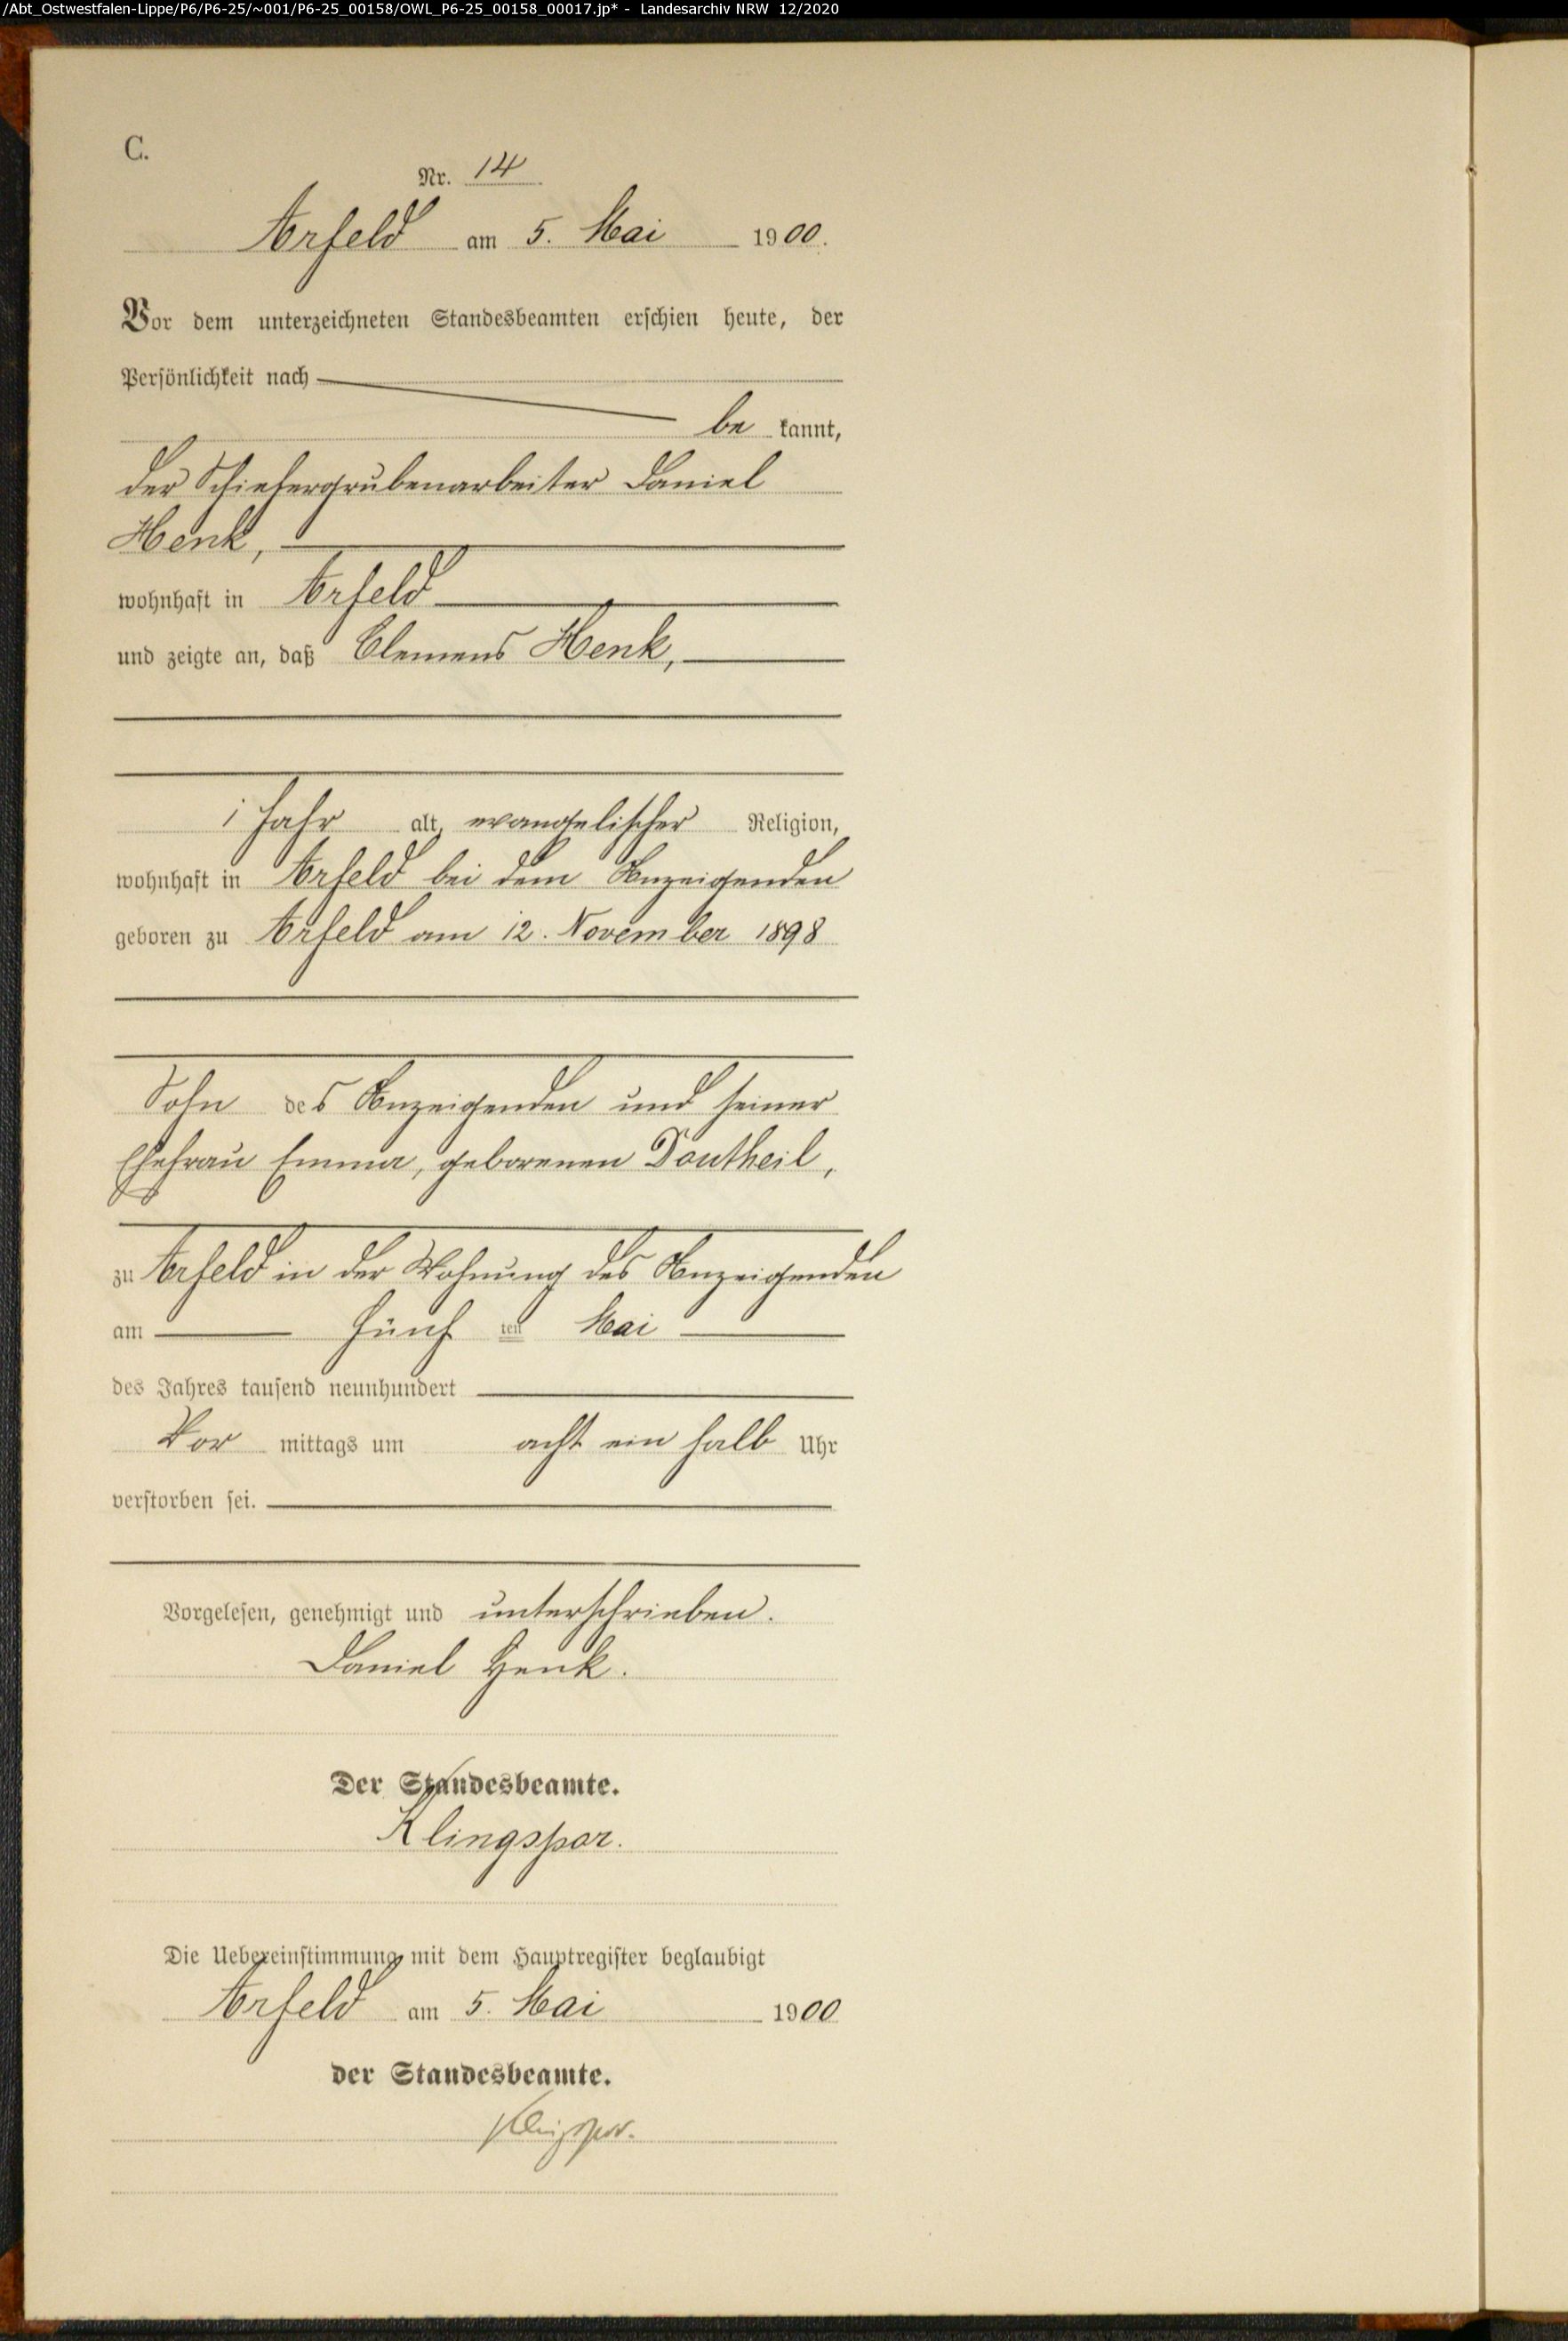 /Abt_Ostwestfalen-Lippe/P6/P6-25/~001/P6-25_00158/OWL_P6-25_00158_00017.jp* - Landesarchiv NRW 12/2020
C.
Nr. 14
Arfeld am 5. Mai 1900.
Vor dem unterzeichneten Standesbeamten erschien heute, der
Persönlichkeit nach
be kannt,
der Schiefergrubenarbeiter Daniel
Henk,
wohnhaft in Arfeld
und zeigte an, daß Clemens Henk,
1 Jahr alt, evangelischer Religion,
wohnhaft in Arfeld bei dem Anzeigenden
geboren zu Arfeld am 12. November 1898
Sohn des Anzeigenden und seiner
Ehefrau Emma, geborenen Dautheil,
zu Arfeld in der Wohnung des Anzeigenden
am fünf ten Mai
des Jahres tausend neunhundert
Vor mittags um acht ein halb Uhr
verstorben sei.
Vorgelesen, genehmigt und unterschrieben.
Daniel Henk.
Der Standesbeamte.
Klingspor.
Die Uebereinstimmung mit dem Hauptregister beglaubigt
Arfeld am 5. Mai 1900
der Standesbeamte.
Klingspor.